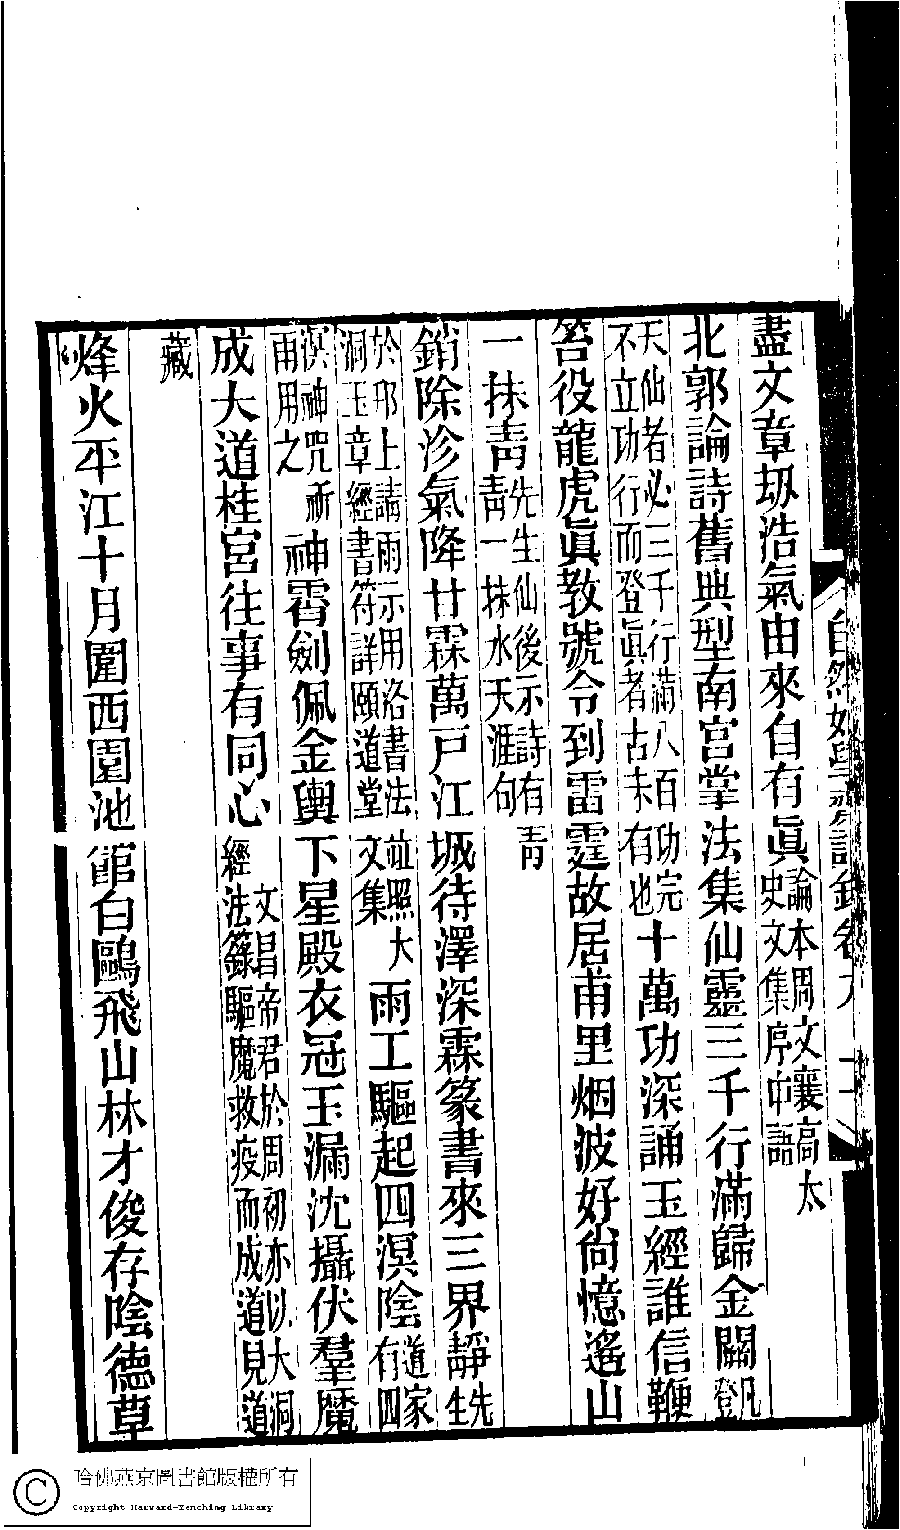 自然好學齋詩鈔卷
盡文章㧞浩氣由來自有眞論本周文襄高太史文集序中語
北郭論詩舊典型南宫掌法集仙靈三千行滿歸金闕凡登
天仙者必三千行滿八百功完不立功行而登眞者古未有也十萬功深誦玉經誰信鞭
笞役龍虎眞教號令到雷霆故居甫里烟波好尙憶遙山
一抹靑先生仙後示詩有靑靑一抹水天涯句
銷除沴氣降甘霖萬戸江城待澤深霖篆書來三界靜先生
於邗上請雨示用洛書法並照大洞玉章經書符詳頤道堂文集雨工驅起四溟陰道家有四
溟神咒祈雨用之神霄劍佩金輿下星殿衣冠玉漏沈攝伏羣魔
成大道桂宮往事有同心文昌帝君於周初亦以大洞經法籙驅魔救疫而成道見道
藏
烽火平江十月圍西園池館白鷗飛山林才俊存陰德草
哈佛燕京圖書館版權所有
Copyright Harvard-Yenching Library